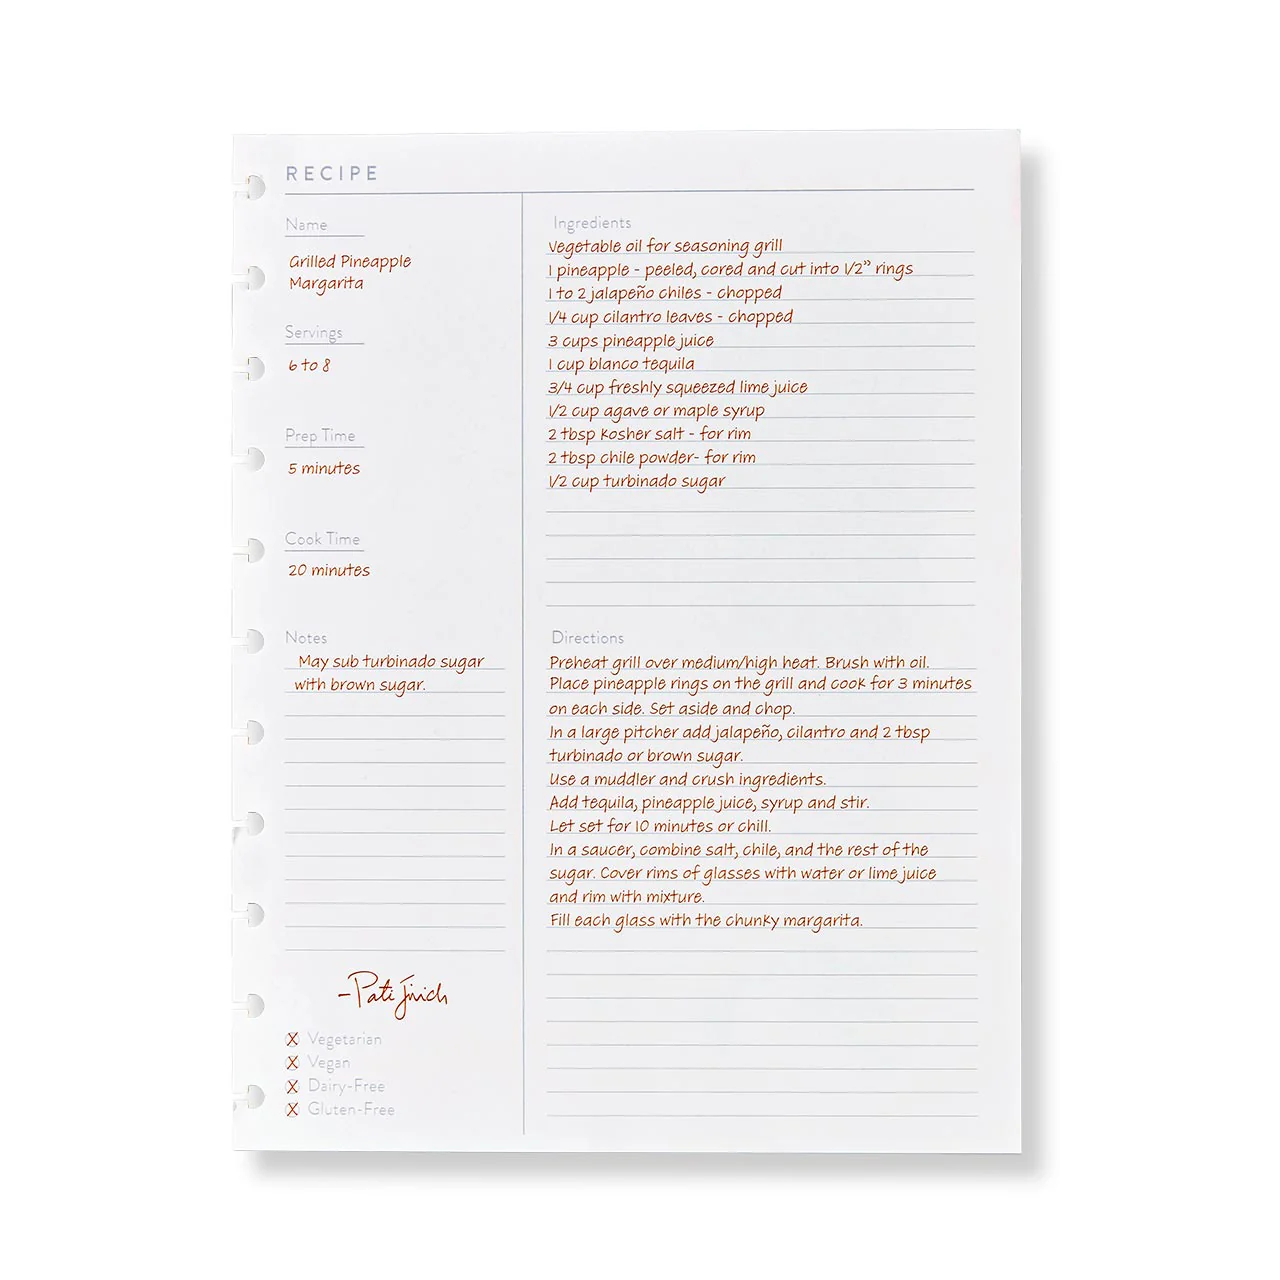 RECIPE
Name
Grilled Pineapple
Margarita
Servings
6 to 8
Prep Time
5 minutes
Cook Time
20 minutes
Notes
May sub turbinado sugar
with brown sugar.
-Pati Jinich
Vegetarian
Vegan
Dairy-Free
Gluten-Free
Ingredients
Vegetable oil for seasoning grill
1 pineapple - peeled, cored and cut into 1/2” rings
1 to 2 jalapeño chiles - chopped
1/4 cup cilantro leaves - chopped
3 cups pineapple juice
1 cup blanco tequila
3/4 cup freshly squeezed lime juice
1/2 cup agave or maple syrup
2 tbsp kosher salt - for rim
2 tbsp chile powder- for rim
1/2 cup turbinado sugar
Directions
Preheat grill over medium/high heat. Brush with oil.
Place pineapple rings on the grill and cook for 3 minutes
on each side. Set aside and chop.
In a large pitcher add jalapeño, cilantro and 2 tbsp
turbinado or brown sugar.
Use a muddler and crush ingredients.
Add tequila, pineapple juice, syrup and stir.
Let set for 10 minutes or chill.
In a saucer, combine salt, chile, and the rest of the
sugar. Cover rims of glasses with water or lime juice
and rim with mixture.
Fill each glass with the chunky margarita.